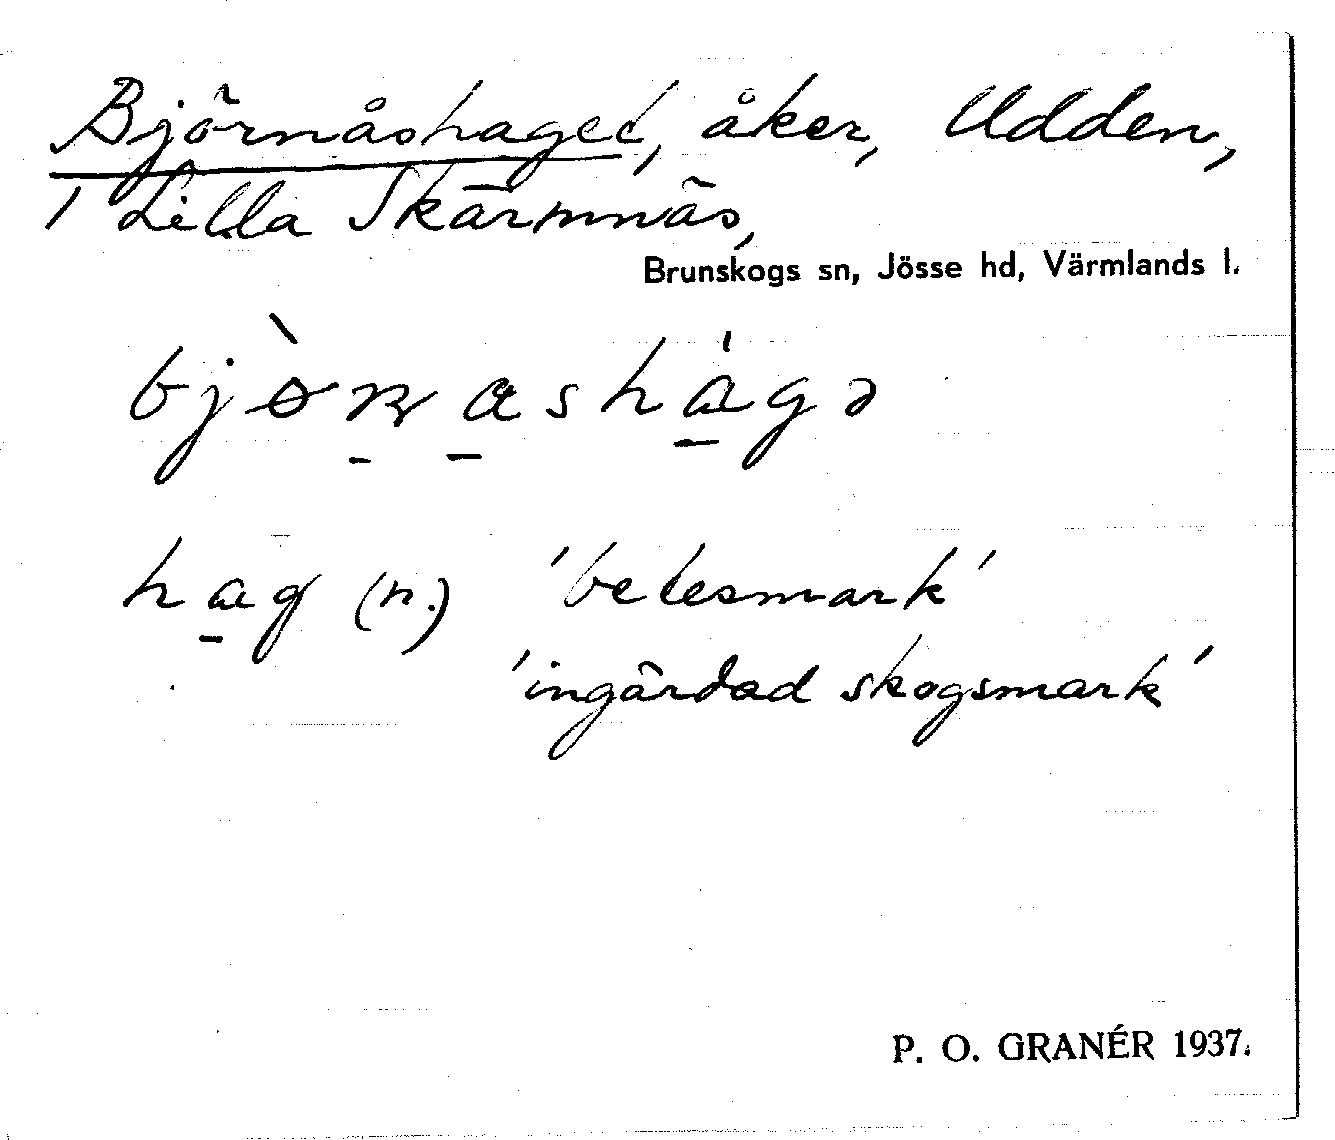 Björnåshaget, åker, Udden,
1 Lilla Skärmnäs,
Brunskogs sn, Jösse hd, Värmlands l.
hag (n.) 'betesmark'
'ingärdad skogsmark'
P. O. GRANÉR 1937.